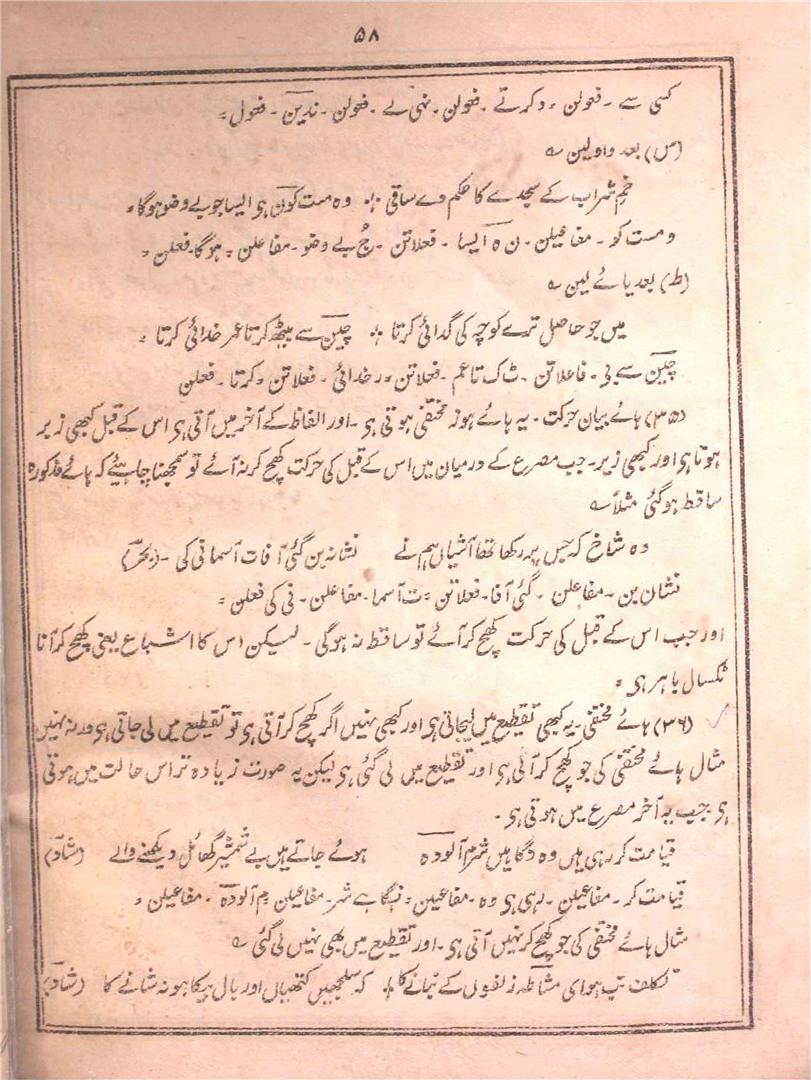 ۵۸
کسی سے - فعولن = دکرتے - فعولن - نہی لے - فعولن - ندین - فعول =
(س) بعد واو لین ؎
خم شراب کے سجدے کا حکم دے ساقی ؛ وہ مست کون ہی ایسا جو بے وضو ہوگا =
و مست کو - مفاعیلن - ن ہ ایسا - فعلاتن - جُ بے وضو - مفاعلن = ہوگا - فعلن =
(ط) بعد یائے لین ؎
میں جو حاصل ترے کوچہ کی گدائی کرتا ؛ چین سے بیٹھ کر تا عمر خدائی کرتا =
چین سے بی - فاعلاتن - ٹ ک تا عم - فعلاتن = ر خدائی - فعلاتن = کرتا - فعلن
(۳۵) ہائے بیان حرکت - یہ ہائے ہوز مختفی ہوتی ہی - اور الفاظ کے آخر میں آتی ہی اس کے قبل کبھی زبر
ہوتا ہی اور کبھی زیر - جب مصرع کے درمیان میں اس کے قبل کی حرکت کھچ کر نہ آئے تو سمجھنا چاہیئے کہ ہائے مذکورہ
ساقط ہو گئی مثلاً ؎
وہ شاخ کہ جس پہ رکھا تھا آشیاں ہم نے نشانہ بن گئی آفات آسمانی کی - (بحر)
نشان بن - مفاعلن - گئی آفا - فعلاتن = ت آسما - مفاعلن - نی کی فعلن =
اور جب اس کے قبل کی حرکت کھچ کر آئے تو ساقط نہ ہوگی - لیکن اس کا اشباع یعنی کھچ کر آنا
ٹکسال باہر ہی =
(۳۶) ہائے مختفی - یہ کبھی تقطیع میں لیجاتی ہی اور کبھی نہیں اگر کھچ کر آتی ہی تو تقطیع میں لی جاتی ہی ورنہ نہیں
مثال ہائے مختفی کی جو کھچ کر آئی ہی اور تقطیع میں لی گئی ہی لیکن یہ صورت زیادہ تر اس حالت میں ہوتی
ہی جب یہ آخر مصرع میں ہوتی ہی -
قیامت کر رہی ہیں وہ نگاہیں شرم آلودہ ہوئے جاتے ہیں بے شمشیر گھائل دیکھنے والے (شاد)
قیامت کر - مفاعیلن - رہی ہی وہ - مفاعیلن = نگاہے شر - مفاعیلن م آلودہ - مفاعیلن =
مثال ہائے مختفی کی جو کھچ کر نہیں آتی ہی - اور تقطیع میں بھی نہیں لی گئی ؎
تکلف تب ہو ای مشاطہ زلفوں کے بنانے کا ؛ کہ سلجھیں گتھیاں اور بال بیکا ہو نہ شانے کا (شاد)